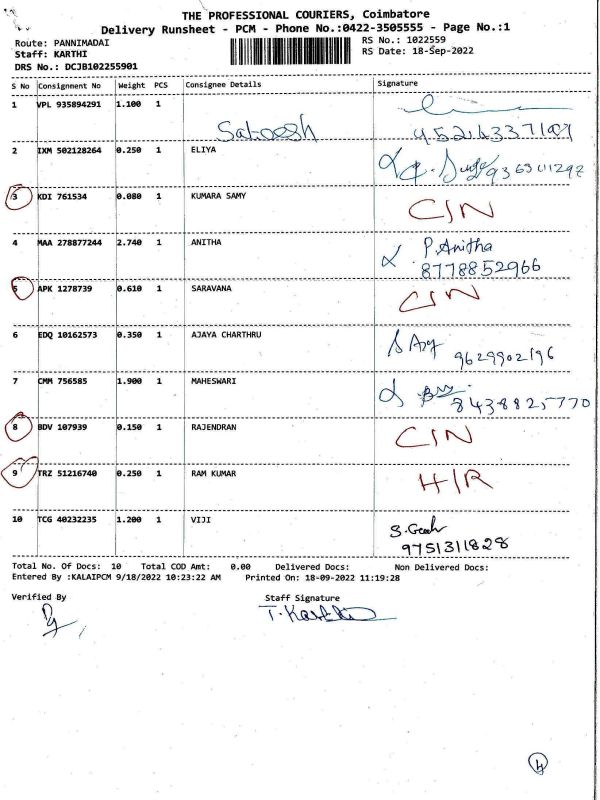 THE PROFESSIONAL COURIERS, Coimbatore
Delivery Runsheet - PCM - Phone No.:0422-3505555 - Page No.:1
Route: PANNIMADAI
Staff: KARTHI
DRS No.: DCJB102255901
RS No.: 1022559
RS Date: 18-Sep-2022
S No Consignment No Weight PCS Consignee Details Signature
1 VPL 935894291 1.100 1
Satoosh
2 IXM 502128264 0.250 1 ELIYA
3 KDI 761534 0.080 1 KUMARA SAMY C/N
4 MAA 278877244 2.740 1 ANITHA P. Anitha
8778852966
5 APK 1278739 0.610 1 SARAVANA C/N
6 EDQ 10162573 0.350 1 AJAYA CHARTHRU
9629902196
7 CMM 756585 1.900 1 MAHESWARI
8438825770
8 BDV 107939 0.150 1 RAJENDRAN C/N
9 TRZ 51216740 0.250 1 RAM KUMAR H/R
10 TCG 40232235 1.200 1 VIJI
9751311828
Total No. Of Docs: 10 Total COD Amt: 0.00 Delivered Docs: Non Delivered Docs:
Entered By :KALAIPCM 9/18/2022 10:23:22 AM Printed On: 18-09-2022 11:19:28
Verified By Staff Signature
4